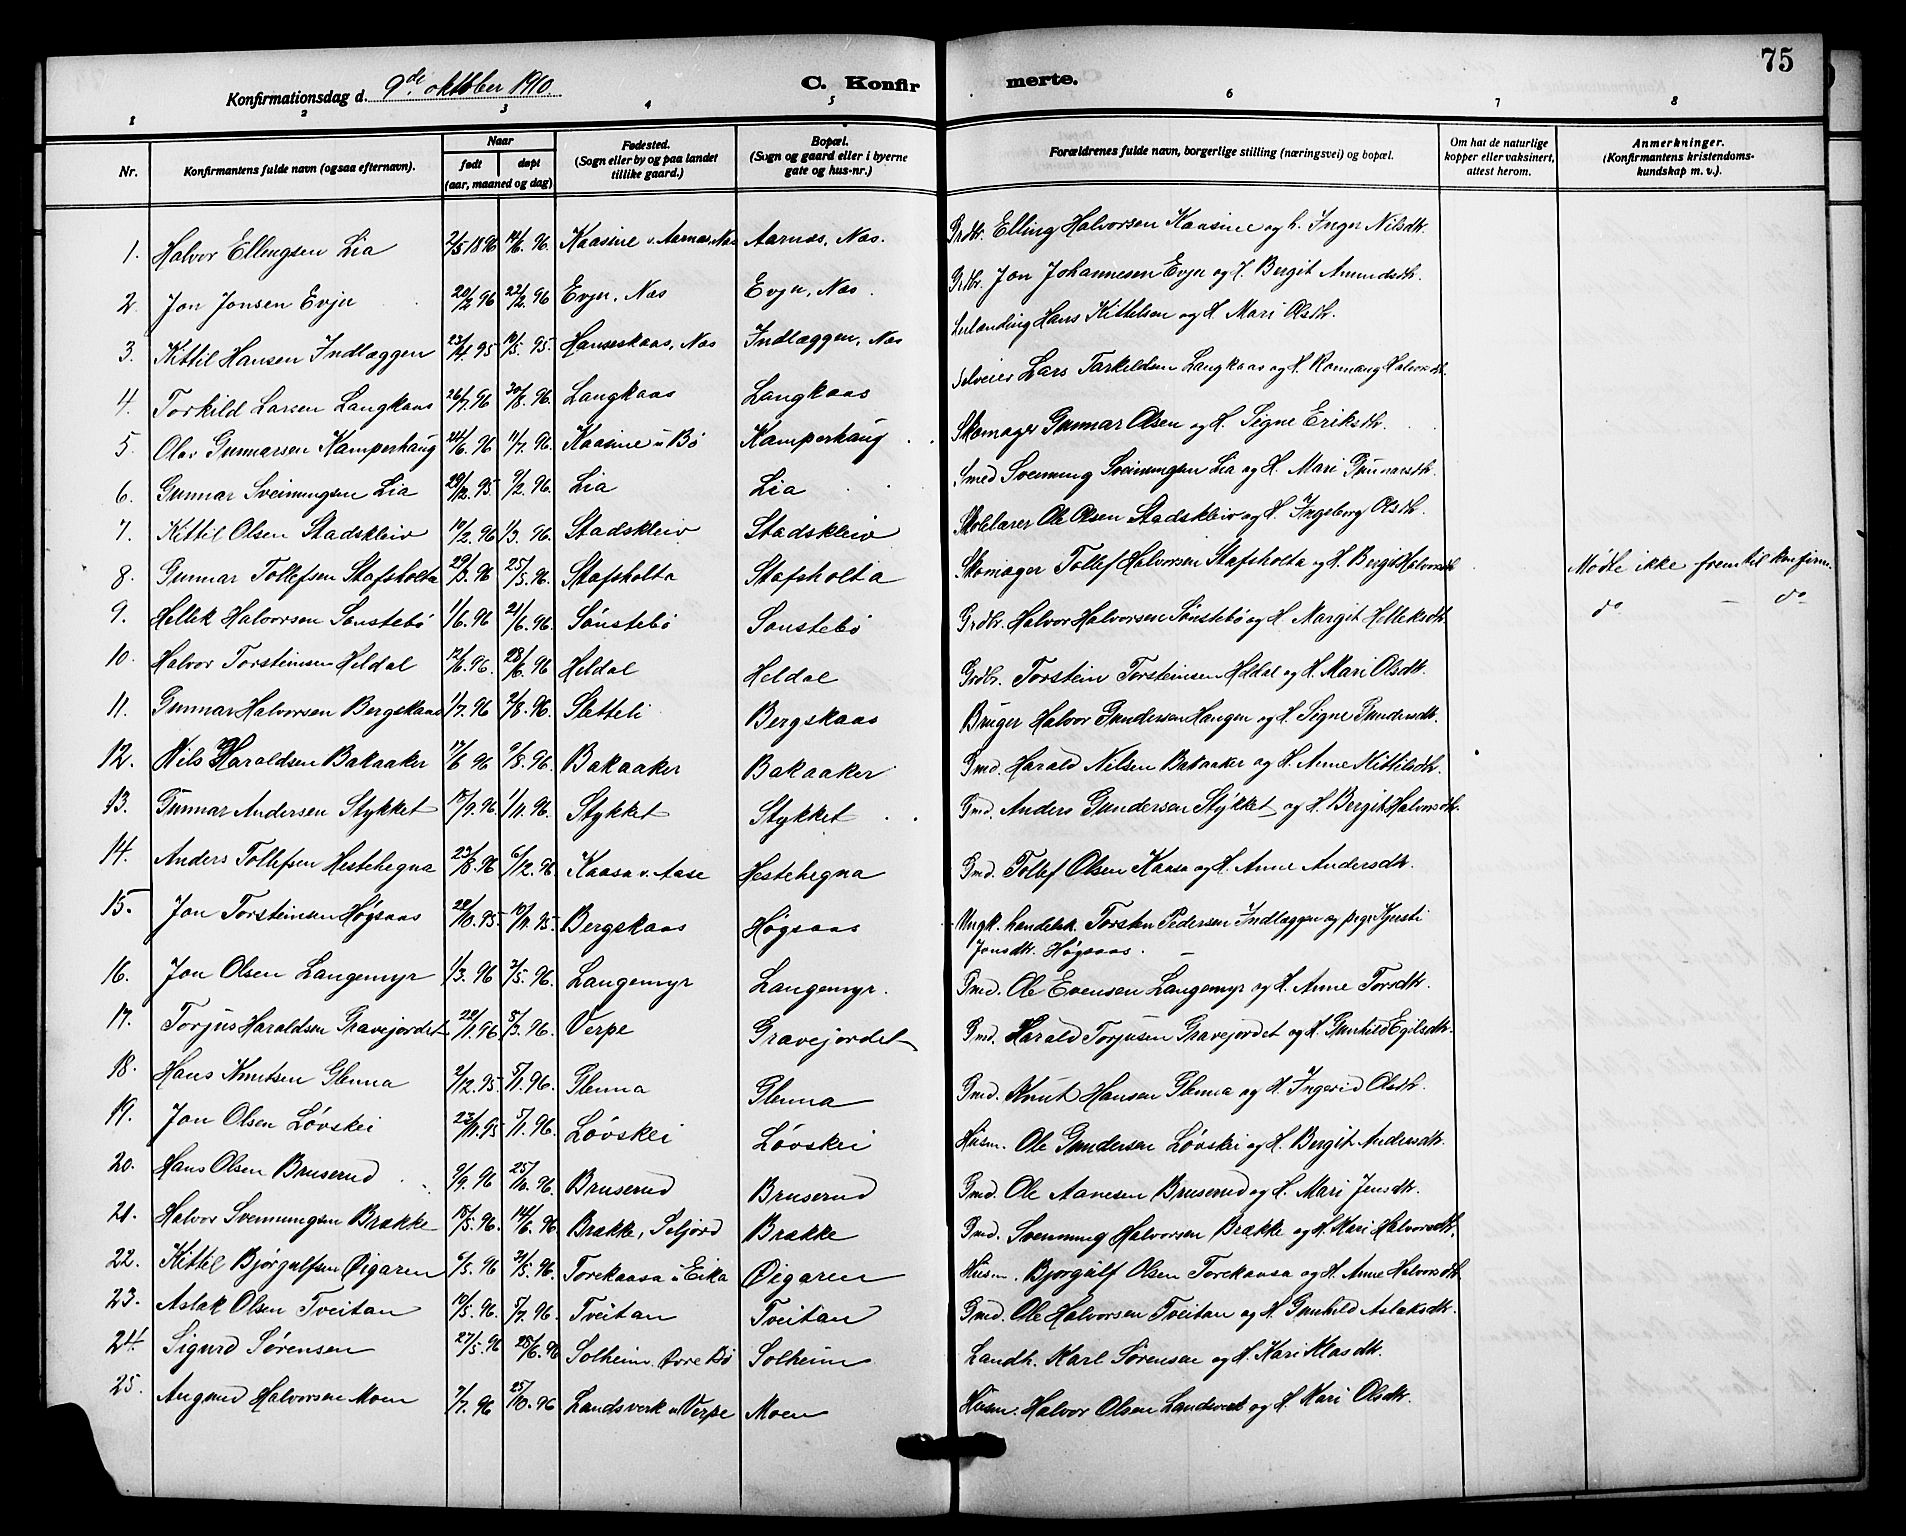 75
Konfirmationsdag d. 9de oktober 1910. C. Konfirmerte.
1 2 3 4 5 6 7 8
Nr. Konfirmantens fulde navn (ogsaa efternavn). Naar født døpt (aar, maaned og dag) Fødested. (Sogn eller by og paa landet tillike gaard.) Bopæl. (Sogn og gaard eller i byerne gate og hus-nr.) Forældrenes fulde navn, borgerlige stilling (næringsvei) og bopæl. Om hat de naturlige kopper eller vaksinert, attest herom. Anmerkninger. (Konfirmantens kristendomskundskap m. v.).
1. Halvor Ellingsen Lia 2/5 1896 14/6. 96. Kaasine v. Aarnæs, Næs Aarnæs, Næs. Grdbr. Elling Halvorsen Kaasine og h. Inger Nilsdtr.
2. Jon Jonsen Evju 20/2 96 22/2. 96 Evju, Næs Evju, Næs. Grdbr. Jon Johannesen Evju og H. Bergit Amundsdtr.
3. Kittil Hansen Indlæggen 23/4 95 19/5. 95. Hanseskaas, Næs Indlæggen, Næs Leilænding Hans Kittelsen og H. Mari Olsdtr.
4. Torkild Larsen Langkaas 26/7. 96 30/8. 96. Langkaas Langkaas Selveier Lars Tarkildsen Langkaas og H. Rønnaug Halvorsdtr.
5 Olav Gunnarsen Kamperhaug 24/6. 96 11/7. 96. Kaasine u. Bø Kamperhaug Skomager Gunnar Olsen og H. Signe Eriksdtr.
6. Gunnar Sveinungsen Lia 29/12. 95 9/2. 96. Lia Lia Smed Svenning Sveinungsen Lia og H. Mari Gunnarsdtr.
7. Kittil Olsen Stadskleiv 10/2. 96 1/3. 96. Stadskleiv Stadskleiv Skolelærer Ole Olsen Stadskleiv og H. Ingeborg Olsdtr.
8. Gunnar Tollefsen Stafsholta 29/3. 96 25/5. 96. Stafsholta Stafsholta Skomager Tollef Halvorsen Stafsholta og H. Bergit Halvorsdtr. Mødte ikke frem til konfirm.
9. Hellek Halvorsen Sønstebø 1/6. 96 21/6. 96. Sønstebø Sønstebø Grdbr. Halvor Halvorsen Sønstebø og H. Margit Helleksdtr. do – do
10. Halvor Torsteinsen Heldal 12/6. 96. 28/6. 96 Heldal Heldal Grdbr. Torstein Torsteinsen Heldal og H. Mari Olsdtr.
11. Gunnar Halvorsen Bergskaas 1/7. 96 2/8. 96. Sletteli Bergskaas Bruger Halvor Gundersen Haugen og H. Signe Gundersdtr.
12. Nils Haraldsen Bakaaker 17/6 96 9/8. 96. Bakaaker Bakaaker Gmd. Harald Nilsen Bakaaker og H. Anne Kittilsdtr.
13. Gunnar Andersen Stykket 15/9. 96 1/11. 96. Stykket Stykket Gmd. Anders Gundersen Stykket og H. Bergit Halvorsdtr.
14. Anders Tollefsen Hestehegna 23/8. 96 6/12. 96 Kaasa v. Aase Hestehegna Gmd. Tollef Olsen Kaasa og H. Anne Andersdtr.
15. Jon Torsteinsen Høgsaas 28/10. 95. 10/11. 95. Bergskaas Høgsaas Ungk. handelsk. Torsten Pedersen Indlæggen og pige Kjersti
Jonsdtr. Høgsaas.
16. Jon Olsen Langemyr 1/3. 96 3/5. 96. Langemyr Langemyr. Gmd. Ole Evensen Langemyr og H. Anne Torsdtr.
17. Torjus Haraldsen Gravejordet 22/1. 96 5/3. 96. Verpe Gravejordet Gmd. Harald Torjusen Gravejordet og H. Gunhild Egilsdtr.
18. Hans Knutsen Glenna 2/12. 95. 5/1. 96. Glenna Glenna Gmd. Knut Hansen Glenna og H. Ingerid Olsdtr.
19. Jon Olsen Løvskei 23/11. 95 5/1. 96. Løvskei Løvskei Husm. Ole Gundersen Løvskei og H. Bergit Andersdtr.
20. Hans Olsen Bruserud 9/9. 96 25/10. 96. Bruserud Bruserud Gmd. Ole Aanesen Bruserud og H. Mari Jensdtr.
21. Halvor Svennungsen Brække 15/5. 96. 14/6. 96 Brække, Seljord Brække Gmd. Svennung Halvorsen Brække og H. Mari Halvorsdtr.
22. Kittil Bjørgulfsen Øigaren 6/5. 96 31/5. 96. Torekaasa u. Eika Øigaren Husm. Bjørgulf Olsen Torekaasa og H. Anne Halvorsdtr.
23. Aslak Olsen Tveitan 10/5. 96. 5/7. 96 Tveitan Tveitan Gmd. Ole Halvorsen Tveitan og H. Gunhild Aslaksdtr.
24. Sigurd Sørensen 27/5. 96 28/6. 96 Solheim, Øvre Bø Solheim Landh. Karl Sørensen og H. Kari Klasdtr.
25. Augmund Halvorsen Moen 7/7. 96 25/10. 96 Landsverk u. Verpe Moen Husm. Halvor Olsen Landsverk og H. Mari Olsdtr.